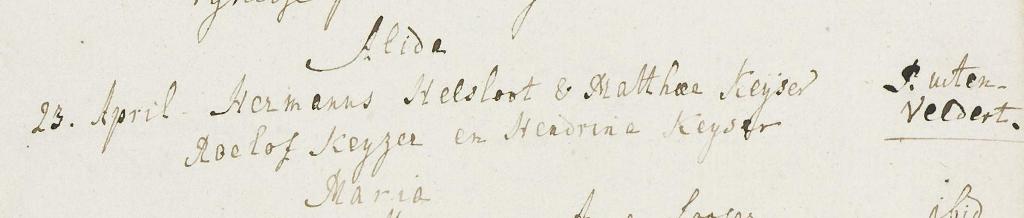 Alida
23. April - Hermanus Helsloot & Matthae Keyser
Roelof Keyzer en Hendrina Keyser
S. uiten-
veldert.
Maria
ibid